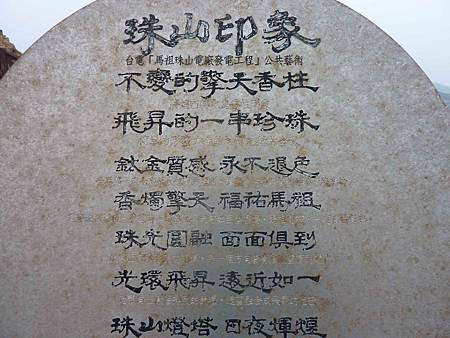 珠山印象
台電「馬祖珠山電廠發電工程」公共藝術
不變的擎天香柱
飛昇的一串珍珠
鈦金質感 永不退色
香燭擎天 福祐馬祖
珠光圓融 面面俱到
光環飛昇 遠近如一
珠山燈塔 日夜輝煌